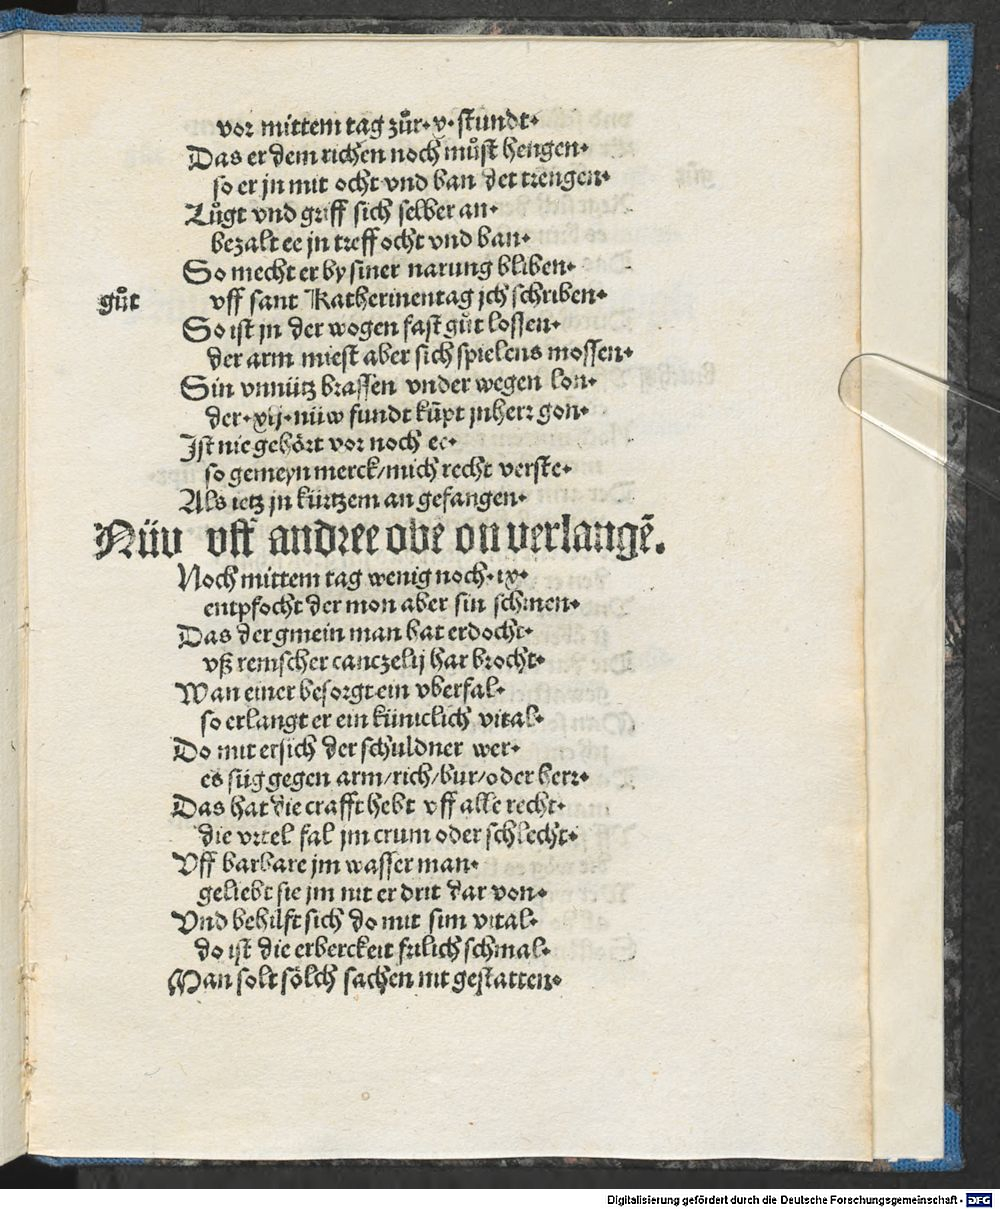 vor mittem tag zůr·v·stundt·
Das er dem richen noch můst hengen·
so er jn mit ocht vnd ban det trengen·
Lůgt vnd griff sich selber an·
bezalt ee jn treff ocht vnd ban·
So mecht er by siner narung bliben·
gůt vff sant Katherinen tag jch schriben·
So ist jn der wogen fast gůt lossen·
der arm miest aber sich spielens mossen·
Sin vnnütz brassen vnder wegen lon·
der·xij·nüw fundt kūpt jnherr gon·
Ist nie gehört vor noch ee·
so gemeyn merck/mich recht verste·
Als ietz jn kürtzem an gefangen·
Nüv vff andree obē on verlangē.
Noch mittem tag wenig noch·ix·
entpfocht der mon aber sin schinen·
Das der gmein man hat erdocht·
vß remscher canczelij har brocht·
Wan einer besorgt ein vberfal·
so erlangt er ein küniclich vital·
Do mit er sich der schuldner wer·
es süg gegen arm/rich/bur/oder herr·
Das hat die crafft hebt vff alle recht·
die vrtel fal jm crum oder schlecht·
Vff barbare jm wasser man·
geliebt sie jm nit er drit dar von·
Vnd behilft sich do mit sim vital·
do ist die erberckeit frilich schmal·
Man solt sölch sachen nit gestatten·
Digitalisierung gefördert durch die Deutsche Forschungsgemeinschaft - DFG